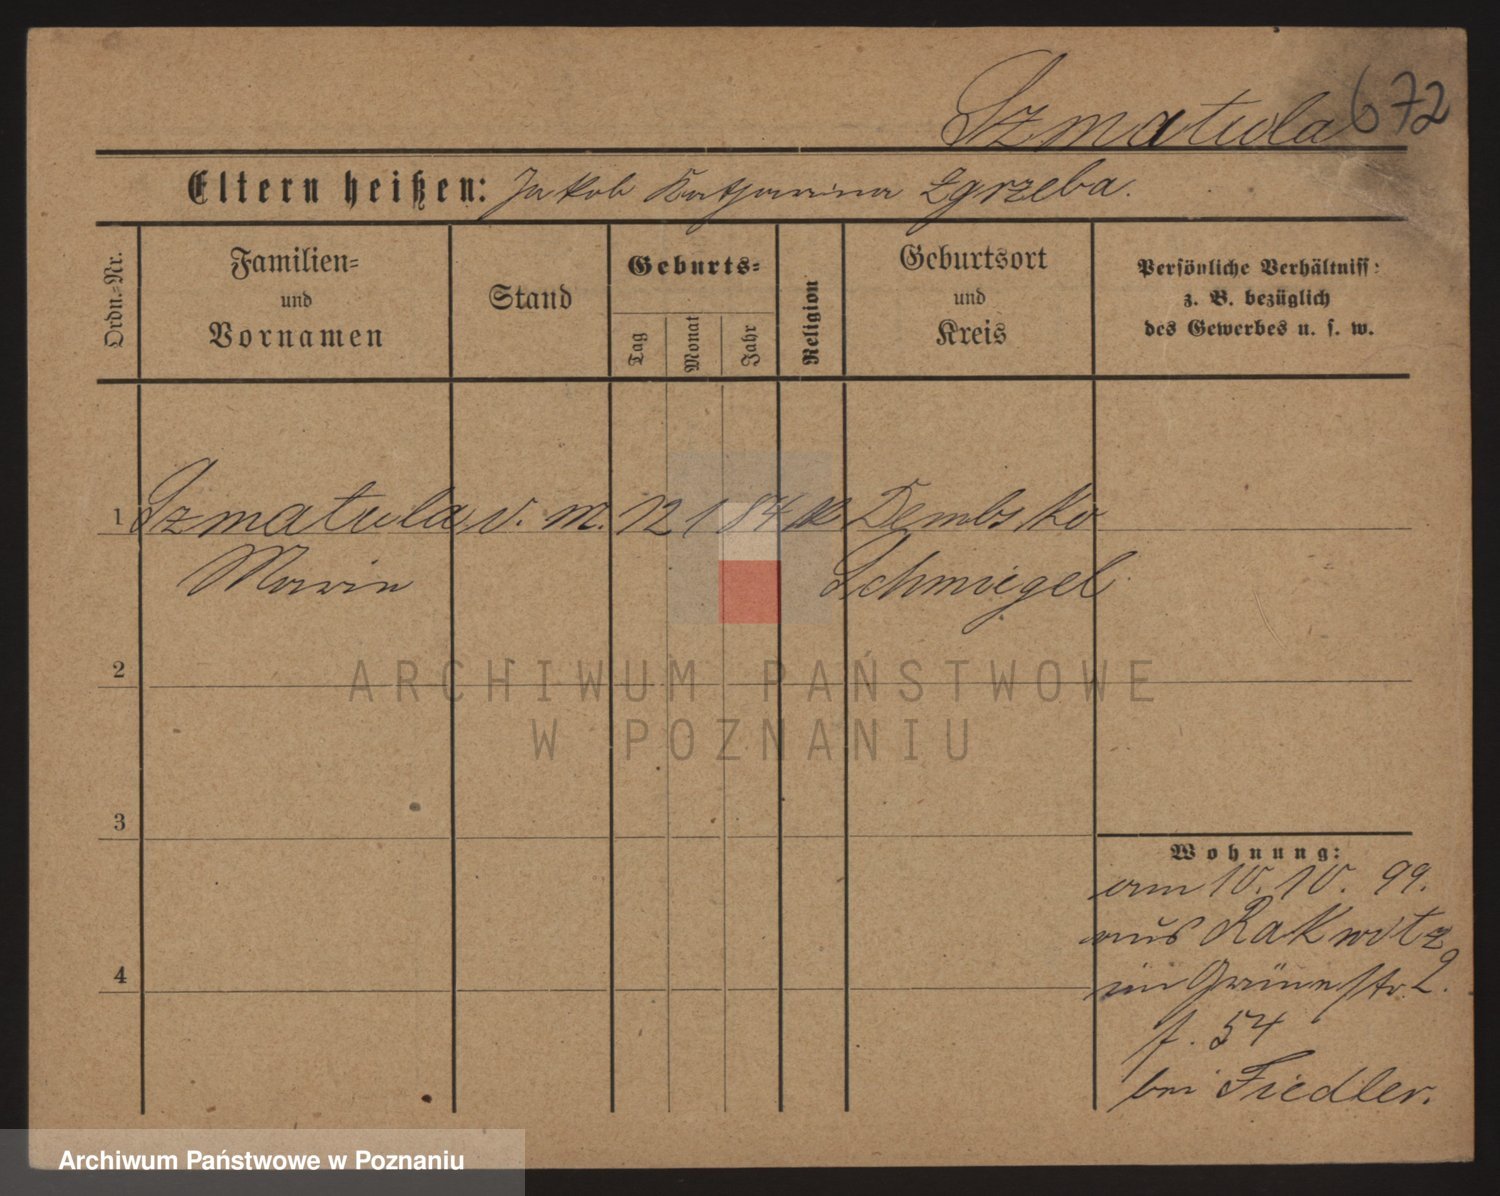 Szmatula 672
Eltern heißen: Jakob Katharina Zgrzeba.
Ordn.-Nr.
Familien-
und
Vornamen
Stand
Geburts-
Tag
Monat
Jahr
Religion
Geburtsort
und
Kreis
Persönliche Verhältniss:
z. B. bezüglich
des Gewerbes u. s. w.
1 Szmatula v. m. 12 1 84 K Dembsko
Marie Schmiegel
2
ARCHIWUM PAŃSTWOWE
W POZNANIU
3
Wohnung:
am 10. 10. 99.
aus Rakwitz
in Grünestr. 2.
f. 54
bei Fiedler.
4
Archiwum Państwowe w Poznaniu